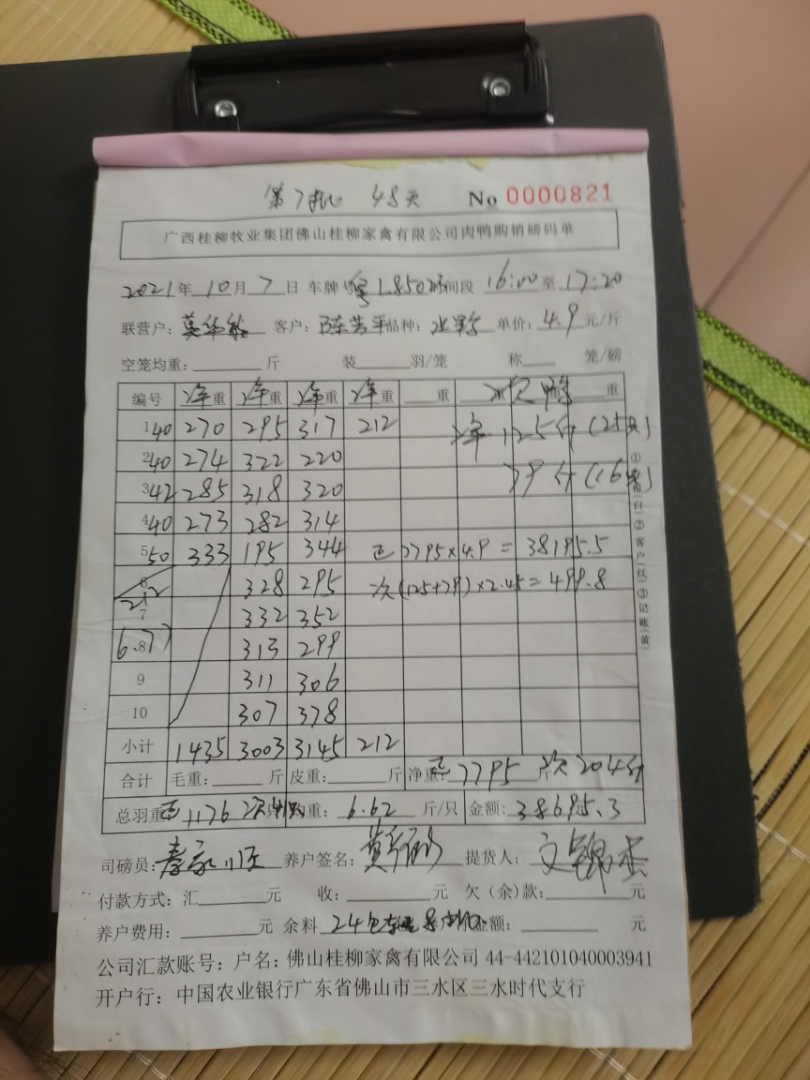 第7批 48天 No 0000821
广西桂柳牧业集团佛山桂柳家禽有限公司肉鸭购销磅码单
2021年10月7日 车牌 粤 1850 时间段 16:00至17:20
联营户: 莫华 客户: 陈芳平 品种: 单价: 4.9 元/斤
空笼均重: 斤 装 羽/笼 称 笼/磅
编号 净重 净重 净重 净重 重 次鸭 重
1 40 270 295 317 212 净 125斤(25只)
2 40 274 322 220
3 42 285 318 320 79斤(16只)
4 40 273 282 314
5 50 333 195 344 正 7795×4.9=38195.5
6 212 328 295 次(125+79)×2.45=499.8
7 332 352
8 6.77 313 299
9 311 306
10 307 378
小计 1435 3003 3145 212
合计 毛重: 斤 皮重: 斤 净重: 正 7795 次204斤
总羽 正1176 次41只 均重: 6.62 斤/只 金额: 38695.3
司磅员: 养户签名: 提货人: 文锦杰
付款方式: 汇 元 收: 元 欠(余)款: 元
养户费用: 元 余料 24包 额: 元
公司汇款账号: 户名: 佛山桂柳家禽有限公司 44-442101040003941
开户行: 中国农业银行广东省佛山市三水区三水时代支行
(白)②客户(红)③记账(黄)